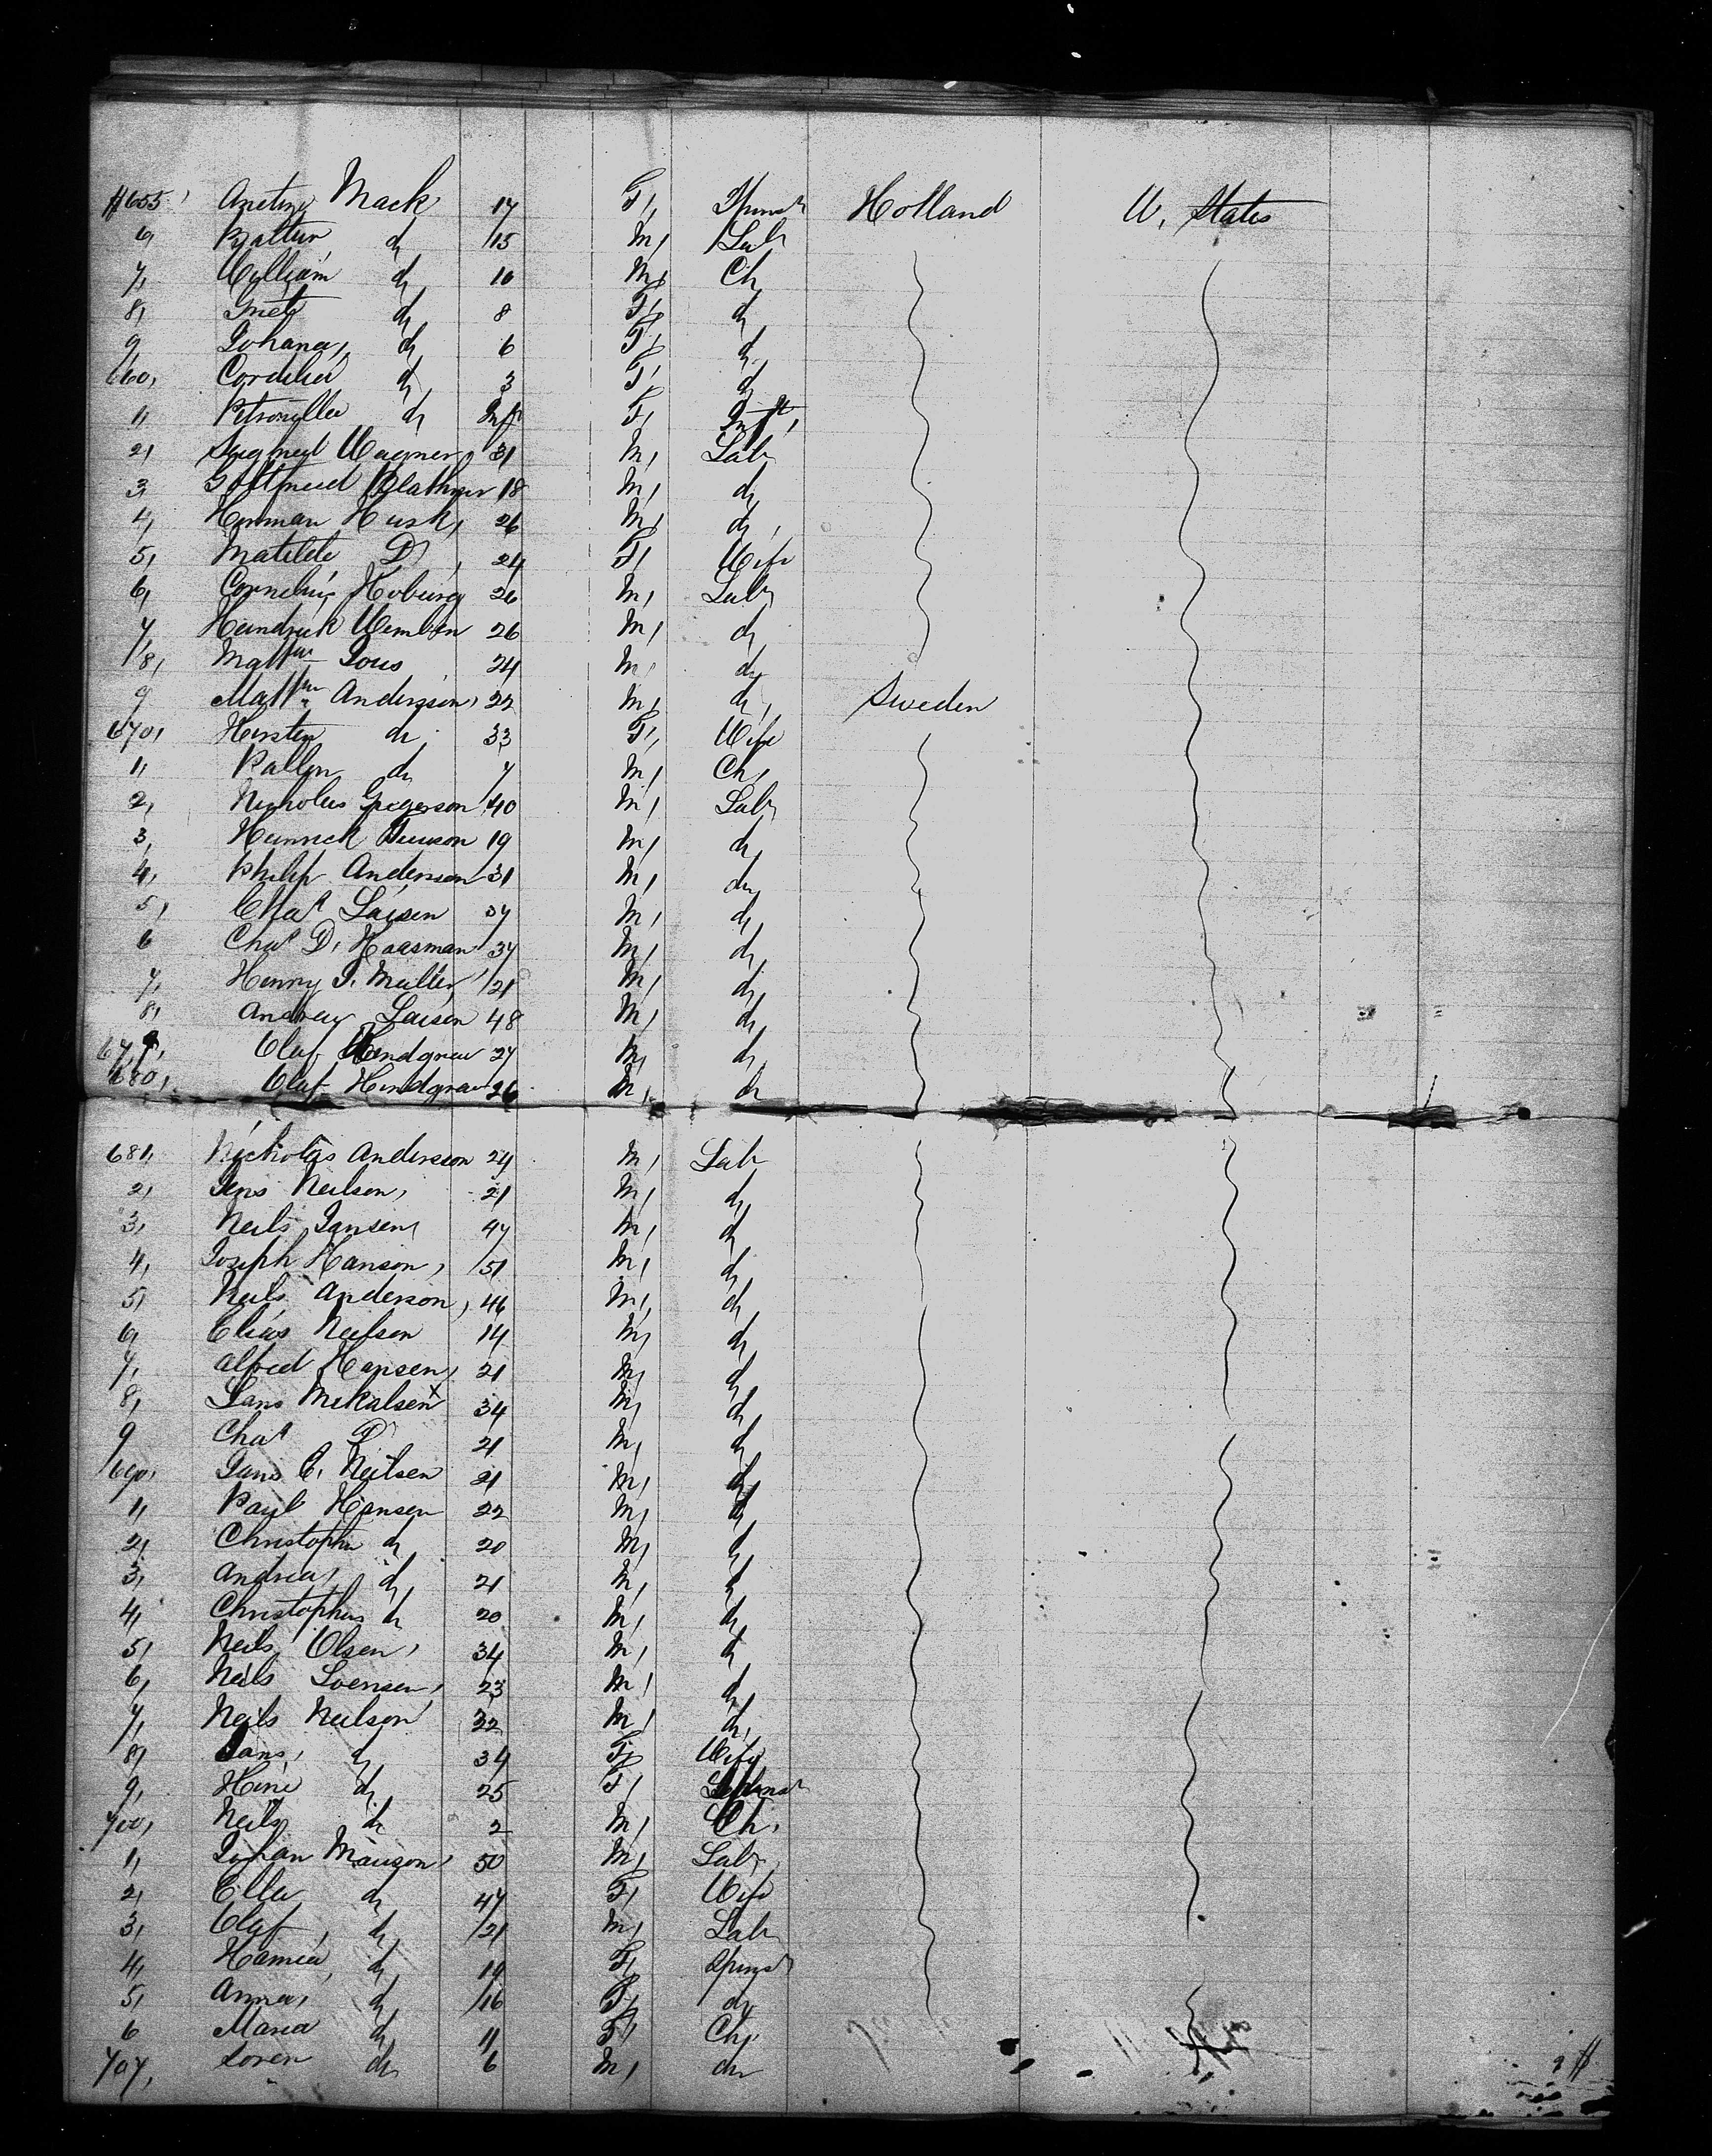 #655 Mack 17 F, Spinst Holland U. States
6, d 15 M, Lab
7, William d 10 M, Ch
8, d 8 F, d
9, Johana, d 6 F, d
660, Cordelia d 3 F, d
1, Petronylla d Inft F, Inft,
2, Wagner 31 M, Lab
3, 18 M, d
4, Herman Hush, 26 M, d
5, Matilda D, 24 F, Wife
6, Cornelius 26 M, Lab
7, Hendrick 26 M, d
8, Matthw 24 M, d
9 Matthw Anderson, 22 M, d, Sweden
670, Kersten d 33 F, Wife
1, d 7 M, Ch,
2, Nicholas Gregerson 40 M, Lab
3, 19 M, d
4, Philip Anderson 31 M, d
5, Chas Laisen 37 M, d
6 Chas D, Haasman 37 M, d
7, Henry J. Muller 21 M, d
8, Andrew Laisen 48 M, d
679, Olaf 27 M, d
680, Olaf Hendgran 26 M, d
681, Nicholas Anderson 24 M, Lab
2, Jens Neilsen, 21 M, d
3, Neils Jansen, 47 M, d
4, Joseph Hanson, 51 M, d
5, Neils Anderson, 46 M, d
6, Elias Neilsen 14 M, d
7, Alfred Hansen, 21 M, d
8, Mekalsen x 34 M, d
9 Chas D 21 M, d
690, Jans C. Neilsen 21 M, d
1, Paul Hansen 22 M, d
2, Christopher d 20 M, d
3, Andrea, d 21 M, d
4, Christopher d 20 M, d
5, Neils Olsen, 34 M, d
6, Neils Svensen, 23 M, d
7, Neils Neilson 32 M, d
8, Jans, d 34 F, Wife
9, d 25 F, Spinst
700, Neils d 2 M, Ch,
1, Johan Manson, 50 M, Lab
2, Ella d 47 F, Wife
3, Olaf, d 21 M, Lab
4, d 19 F, Spinst
5, Anna, d 16 F, do
6 Maria d 11 F, Ch,
707, Soren d 6 M, d